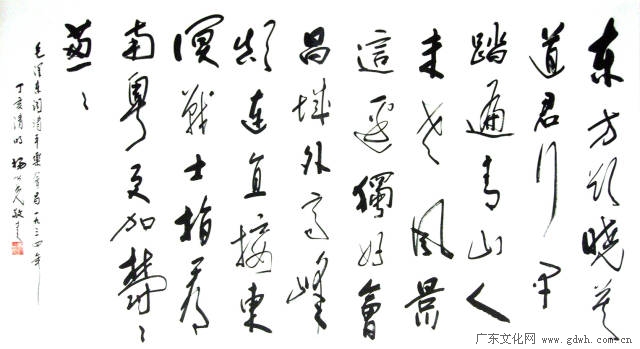 东方欲曉莫
道君行早
踏遍青山人
未老風景
這邊獨好會
昌城外高峰
顛連直接東
溟戰士指看
南粵更加鬱〻
蔥〻
毛澤東詞清平樂會昌一九三四年
丁亥清明 楊 敬書
广东文化网 www.gdwh.com.cn